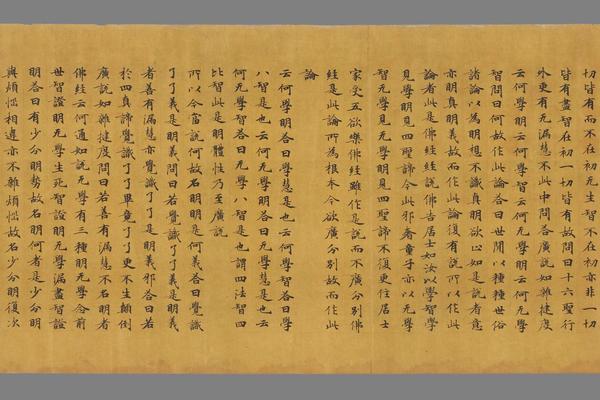 切皆有而不在初无生智不在初亦非一切
皆有盡智在初一切皆有故問曰十六聖行
外更有无漏慧不此中問答廣說如雜揵度
云何學明云何學智云何无學明云何无學
智問曰何故作此論答曰世間以種種世俗
諸論以為明想不識真明欲止如是說者意
亦明真明義故而作此論復有說所以作此
論者此是佛經經說佛告居士如汝以學智學
見學明見四聖諦今此邪奢童子亦以无學
智无學見无學明見四聖諦不復更住居士
家受五欲樂佛經雖作是說而不廣分別佛
經是此論所為根本今欲廣分別故而作此
論
云何學明答曰學慧是也云何學智答曰學
八智是也云何无學明答曰无學慧是也云
何无學智答曰无學八智是也謂四法智四
比智此是明體性乃至廣說
所以今當說何故名明明是何義答曰覺識
了了義是明義問曰若覺識了了義是明義
者善有漏慧亦覺識了了是明義邪答曰若
於四真諦覺識了了畢竟了了更不生顛倒
廣說如雜揵度問曰若善有漏慧不名明者
佛經云何通如說无學有三種明无學念前
世智證明无學生死智證明无學漏盡智證
明答曰有少分明勢故名明何者是少分明
與煩惱相違亦不雜煩惱故名少分明復次